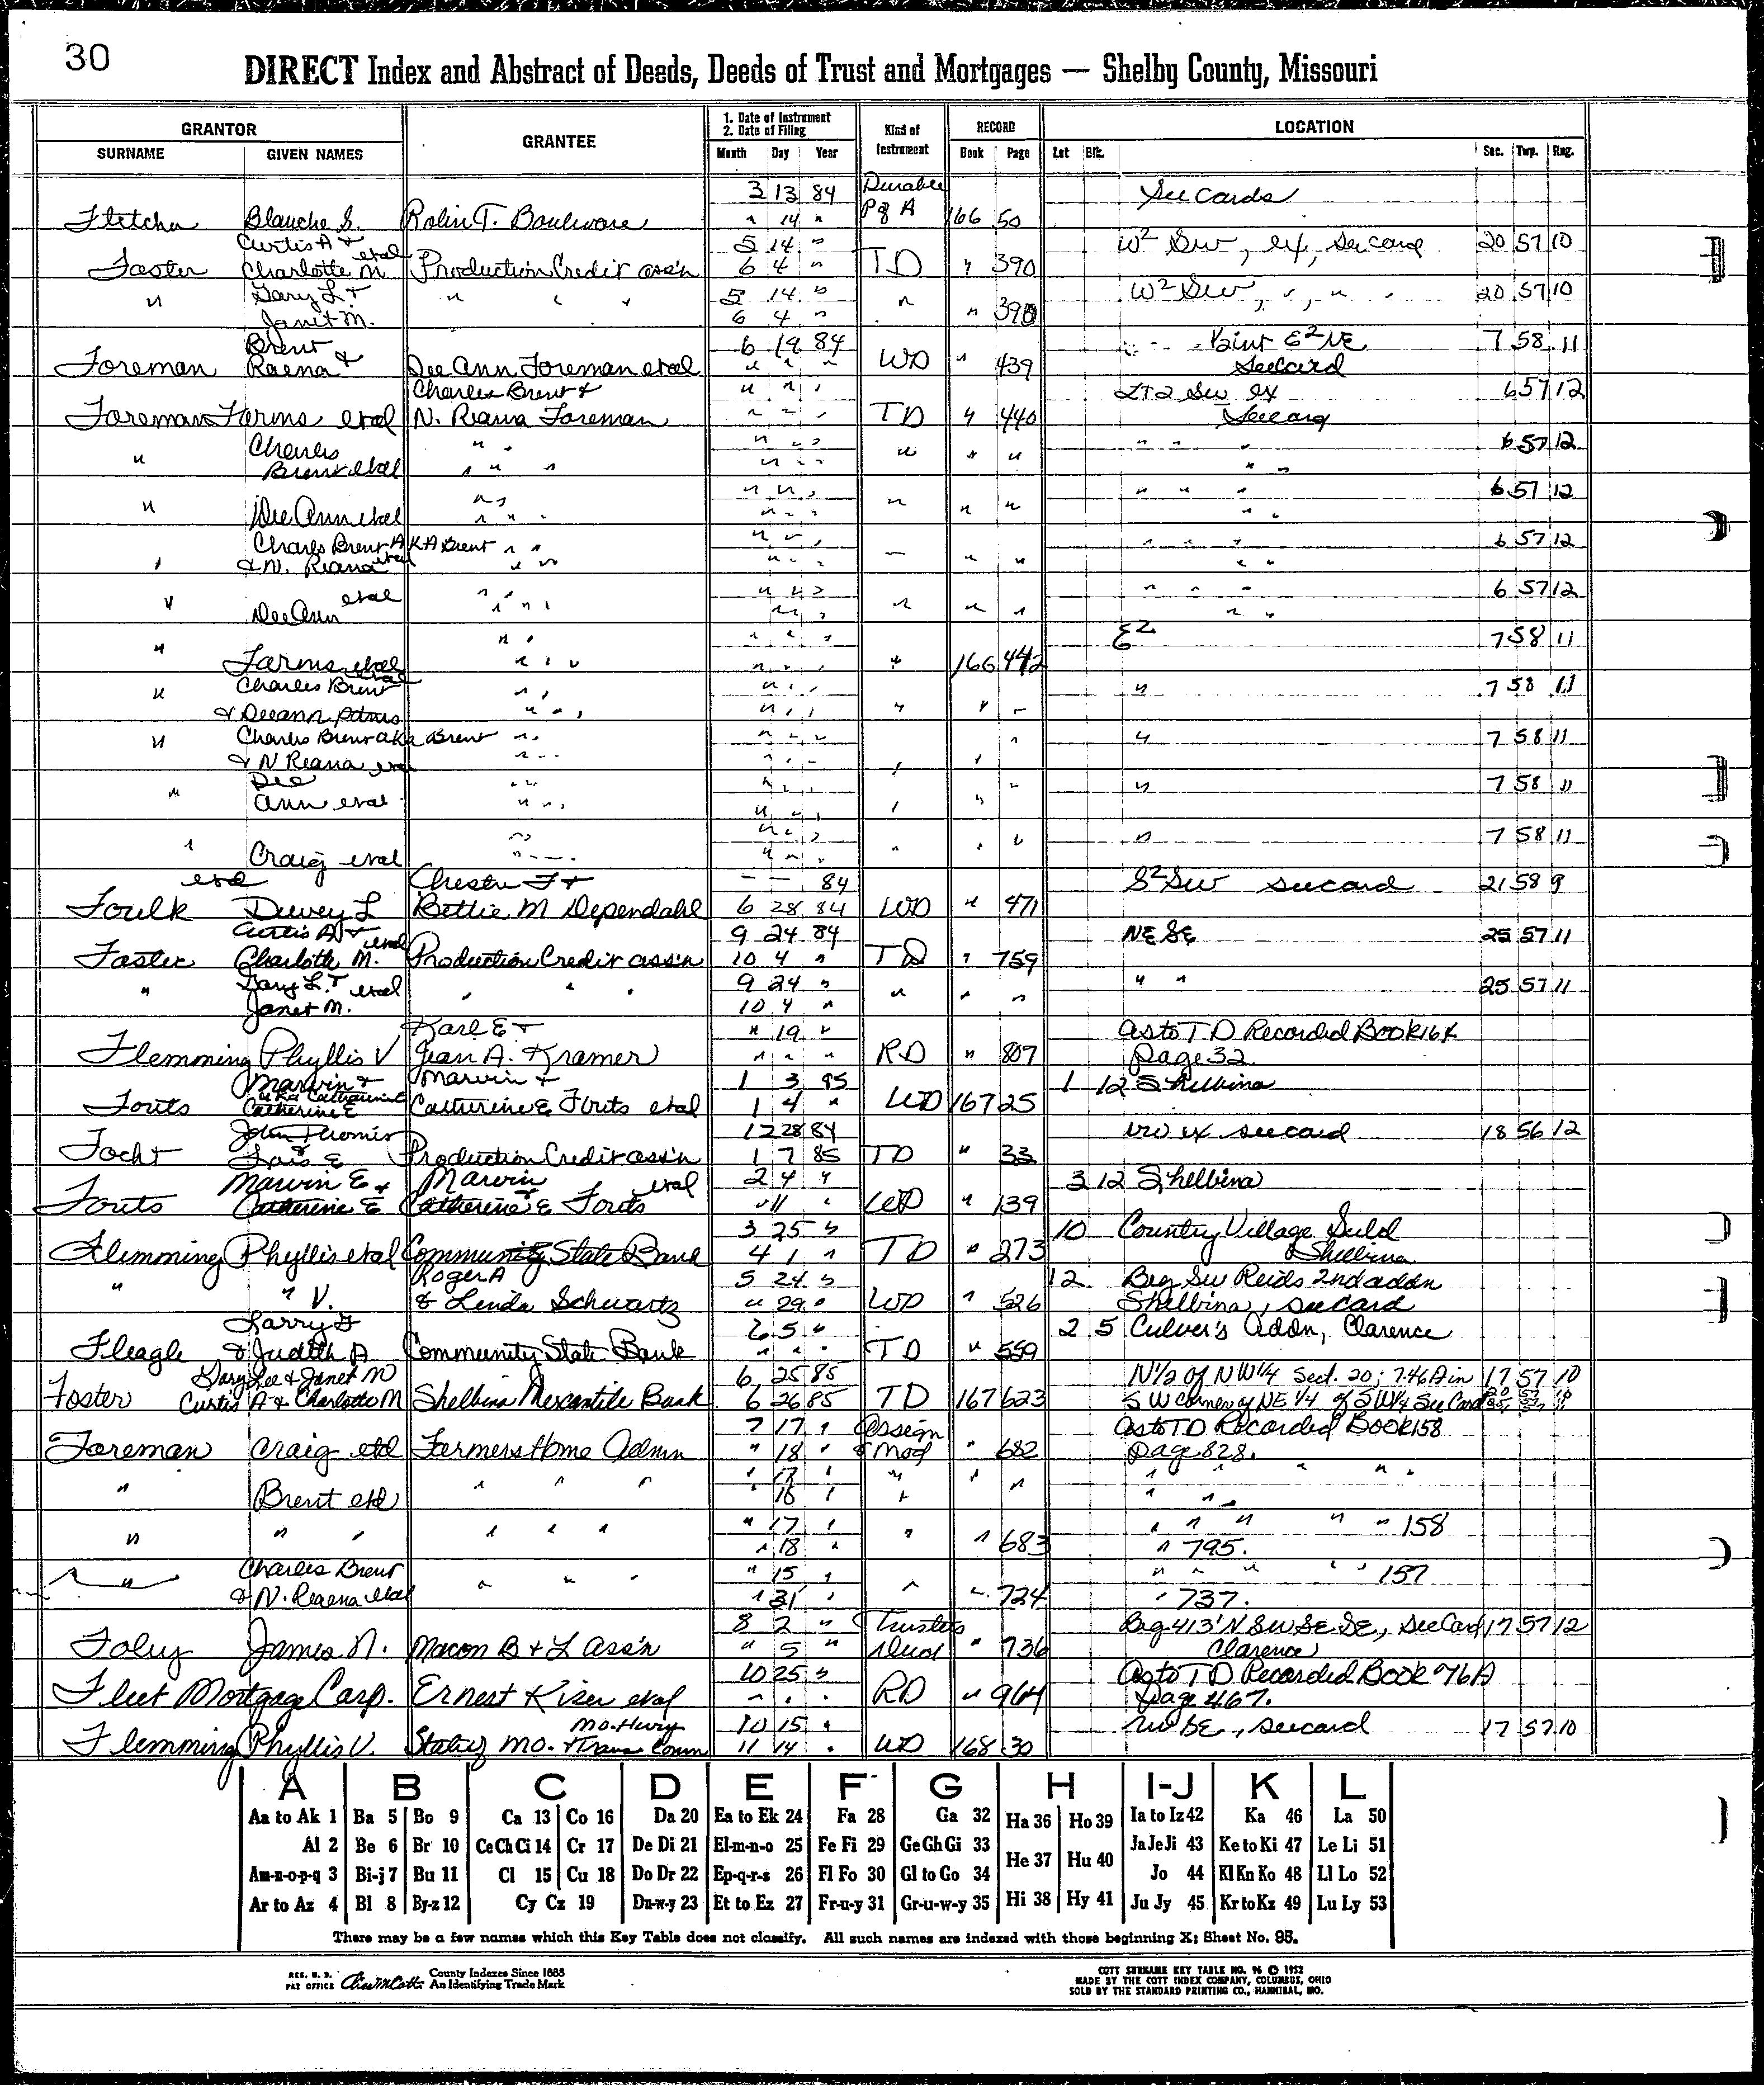 30
DIRECT Index and Abstract of Deeds, Deeds of Trust and Mortgages — Shelby County, Missouri
GRANTOR GRANTEE 1. Date of Instrument 2. Date of Filing Kind of Instrument RECORD LOCATION
SURNAME GIVEN NAMES Month Day Year Book Page Lot Blk. Sec. Twp. Rng.
3 13 84 Durable See Cards
Fletcher Blanche S. Robin T. Boulware " 14 " P of A 166 50
Curtis A + etal 5 14 " W2 SW, ex, see card 20 57 10
Foster Charlotte M Production Credit ass'n 6 4 " TD " 390
" Gary L + " " " 5 14 " " W2 SW, ", " 20 57 10
Janet M. 6 4 " " 390
Brent 6 19 84 E2 NE 7 58 11
Foreman Raena & Dee Ann Foreman etal " " " WD " 439 See card
Charles Brent & " " " LT 2 SW ex 6 57 12
Foreman Farms etal N. Reana Foreman " " " TD " 440 See card
" Charles " " " " " " " " " " " 6 57 12
Brent etal " " " " " " " "
" " " " " " " " " 6 57 12
Dee Ann etal " " " " " " " " " " "
Charles Brent AKA Brent " " " " " " " " 6 57 12
" & N. Reana etal " " " " " " " " " "
" etal " " " " " " " " " " 6 57 12
Dee Ann " " " " " " " " " "
" " " " " " E2 7 58 11
Farms etal " " " " " " " 166 442
" Charles Brent etal " " " " " " 7 58 11
& Deeann " " " " " " " " "
" Charles Brent aka Brent " " " " " " " 7 58 11
& N Reana etal " " " " " " " "
" Dee " " " " " " " 7 58 11
Ann etal " " " " " " " "
" " " " " " " 7 58 11
Craig etal " " " " " " " "
etal Chester F + — — 84 S2 SW see card 21 58 9
Foulk Dewey L Bettie M Dependahl 6 28 84 WD " 471
Curtis A + etal 9 24 84 NE SE 25 57 11
Foster Charlotte M. Production Credit ass'n 10 4 " TD " 759
" Gary L. + etal " " " 9 24 " " " " " " 25 57 11
Janet M. 10 4 "
Karl E + " 19 " As to TD Recorded Book 164
Flemming Phyllis V Jean A. Kramer " " " RD " 807 page 32
Marvin + Marvin + 1 3 85 1 12 Shelbina
Fouts aka Catharine Catherine E Catherine E Fouts etal 1 4 " WD 167 25
John Thomas 12 28 84 ex see card 18 56 12
Focht + Lois E Production Credit ass'n 1 7 85 TD " 33
Marvin E + Marvin etal 2 4 " 3 12 Shelbina
Fouts Catherine E Catherine E Fouts " 11 " WD " 139
3 25 " 10 Country Village Subd
Flemming Phyllis etal Community State Bank 4 1 " TD " 273 Shelbina
" " V. Roger A 5 24 " 12 Beg SW Reids 2nd addn
& Linda Schwartz " 29 " WD " 526 Shelbina, see card
Larry G 6 5 " 2 5 Culver's Addn, Clarence
Fleagle & Judith A Community State Bank " " " TD " 559
Gary Lee & Janet M 6 25 85 N1/2 of NW1/4 Sect. 20; 7.46A in 17 57 10
Foster Curtis A & Charlotte M Shelbina Mercantile Bank 6 26 85 TD 167 623 SW Corner of NE 1/4 of SW1/4 See Card
7 17 " Assign As to TD Recorded Book 158
Foreman Craig etal Farmers Home Admn " 18 " & Mod " 682 page 828.
" " " " " 17 " " " " " " " " "
Brent etal " 18 " " " "
" " " " " " " 17 " " " " " " " 158
" 18 " " 683 " 795.
" Charles Brent " " " " 15 " " " " " " 157
& N. Reaena etal " 31 " " " 724 " 737.
8 2 " Trustees Beg 413' N SW SE SE, See Card 17 57 12
Foley James N. Macon B & L Ass'n " 5 " Deed " 736 Clarence
10 25 " As to TD Recorded Book 76A
Fleet Mortgage Corp. Ernest Kiser etal " " " RD " 964 page 467.
Mo. Hwry 10 15 " NW SE, see card 17 57 10
Flemming Phyllis V. State of Mo. & Trans Comm 11 14 " WD 168 30
A B C D E F G H I-J K L
Aa to Ak 1 Ba 5 Bo 9 Ca 13 Co 16 Da 20 Ea to Ek 24 Fa 28 Ga 32 Ha 36 Ho 39 Ia to Iz 42 Ka 46 La 50
Al 2 Be 6 Br 10 Ce Ch Ci 14 Cr 17 De Di 21 El-m-n-o 25 Fe Fi 29 Ge Gh Gi 33 He 37 Hu 40 Ja Je Ji 43 Ke to Ki 47 Le Li 51
Am-n-o-p-q 3 Bi-j 7 Bu 11 Cl 15 Cu 18 Do Dr 22 Ep-q-r-s 26 Fl Fo 30 Gl to Go 34 Jo 44 Kl Kn Ko 48 Ll Lo 52
Ar to Az 4 Bl 8 By-z 12 Cy Cz 19 Du-w-y 23 Et to Ez 27 Fr-u-y 31 Gr-u-w-y 35 Hi 38 Hy 41 Ju Jy 45 Kr to Kz 49 Lu Ly 53
There may be a few names which this Key Table does not classify. All such names are indexed with those beginning X; Sheet No. 95.
REG. U. S. PAT OFFICE County Indexes Since 1888 An Identifying Trade Mark
COTT SURNAME KEY TABLE NO. 96 © 1952
MADE BY THE COTT INDEX COMPANY, COLUMBUS, OHIO
SOLD BY THE STANDARD PRINTING CO., HANNIBAL, MO.